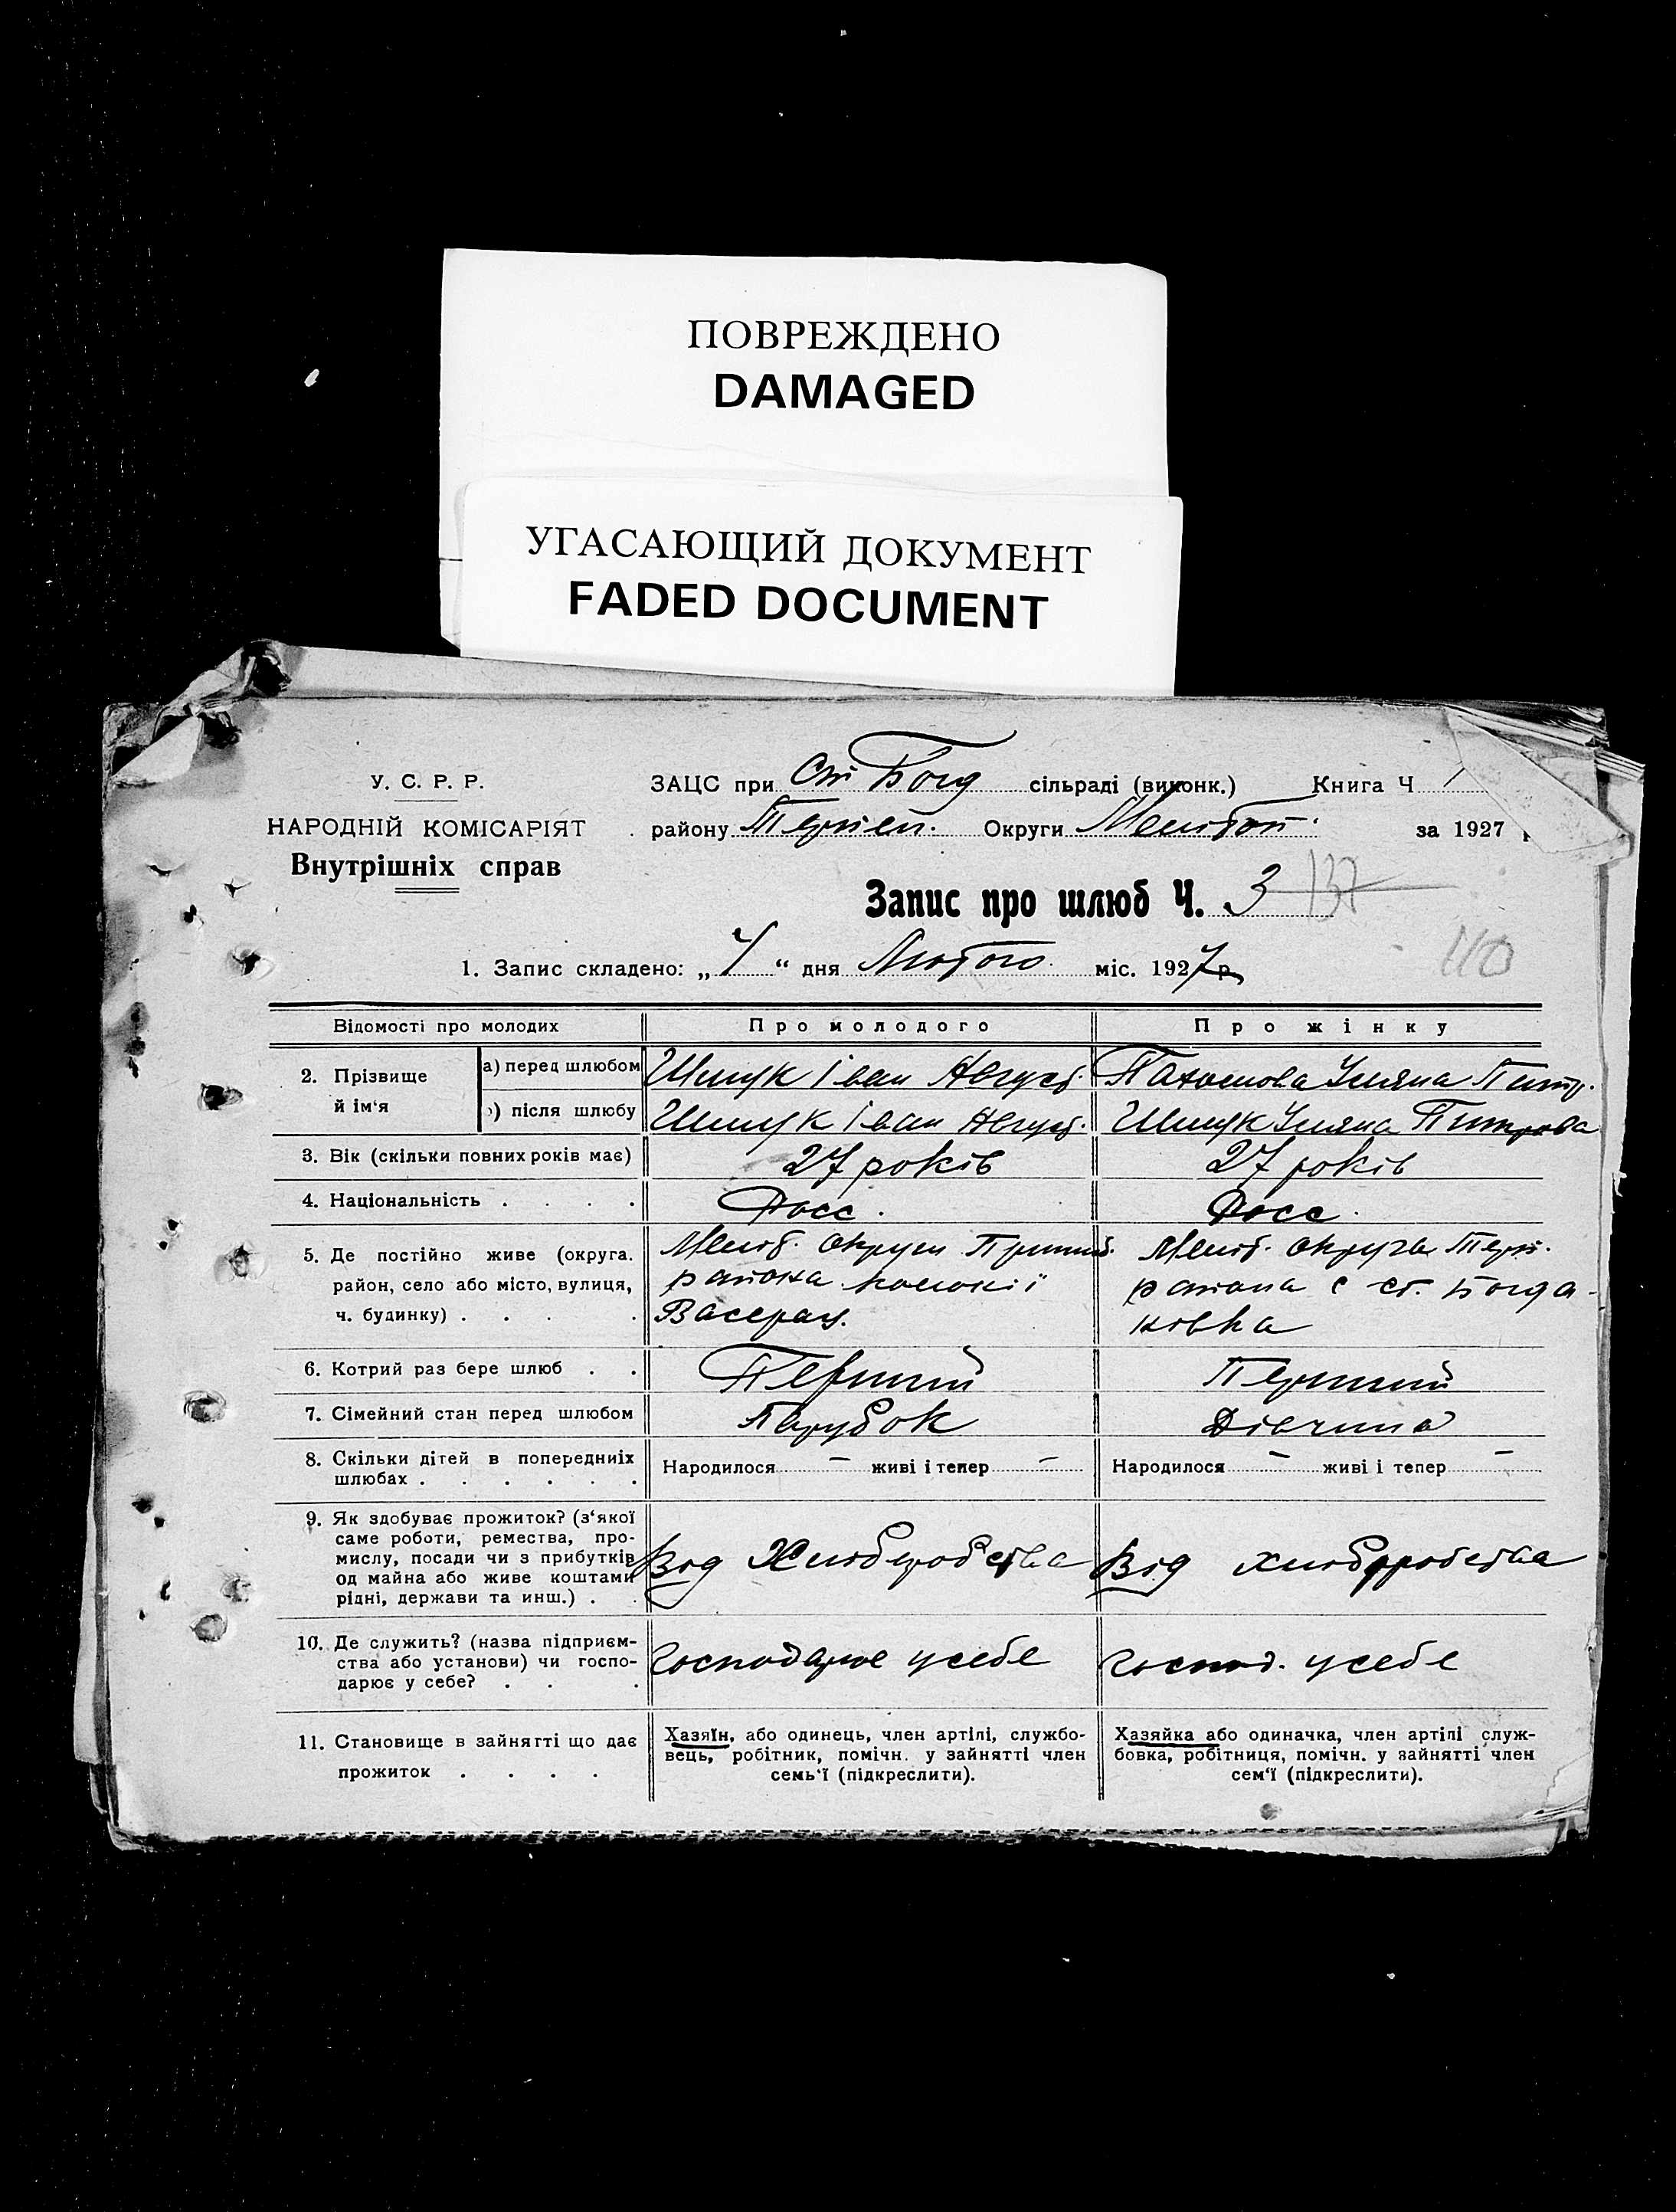 ПОВРЕЖДЕНО
DAMAGED
УГАСАЮЩИЙ ДОКУМЕНТ
FADED DOCUMENT
У. С. Р. Р.
НАРОДНІЙ КОМІСАРІЯТ
Внутрішніх справ
ЗАЦС при Ст Богд сільраді (виконк.) Книга Ч 1
району Терпен. Округи Мелітоп. за 1927
Запис про шлюб Ч. 3 137
110
1. Запис складено: „ “ дня Лютого міс. 1927 р,
Відомості про молодих Про молодого Про жінку
2. Прізвище й ім‘я
а) перед шлюбом Шмук Іван Август. Пахомова Уляна
) після шлюбу Шмук Іван Август. Шмук Уляна Питрова
3. Вік (скільки повних років має) 27 років 27 років
4. Національність . . . . Росс. Росс.
5. Де постійно живе (округа. район, село або місто, вулиця, ч. будинку) . . . .
Меліт. округи Пришиб. района колонії Васерау.
Меліт. округа Терп. района с ст. Богда- нівка
6. Котрий раз бере шлюб . . Перший Перший
7. Сімейний стан перед шлюбом Парубок Дівчина
8. Скільки дітей в попередніх шлюбах . . . . . .
Народилося — живі і тепер —
Народилося — живі і тепер —
9. Як здобуває прожиток? (з‘якої
саме роботи, ремества, про-
мислу, посади чи з прибутків
од майна або живе коштами
рідні, держави та инш.) . .
Від Хліборобства
Від хліборобства
10. Де служить? (назва підприєм-
ства або установи) чи госпо-
дарює у себе? . . .
Господарює у себе
Господ. у себе
11. Становище в зайнятті що дає
прожиток . . . .
Хазяїн, або одинець, член артілі, службо-
вець, робітник, помічн. у зайнятті член
семь‘ї (підкреслити).
Хазяйка або одиначка, член артілі служ-
бовка, робітниця, помічн. у зайнятті член
сем‘ї (підкреслити).